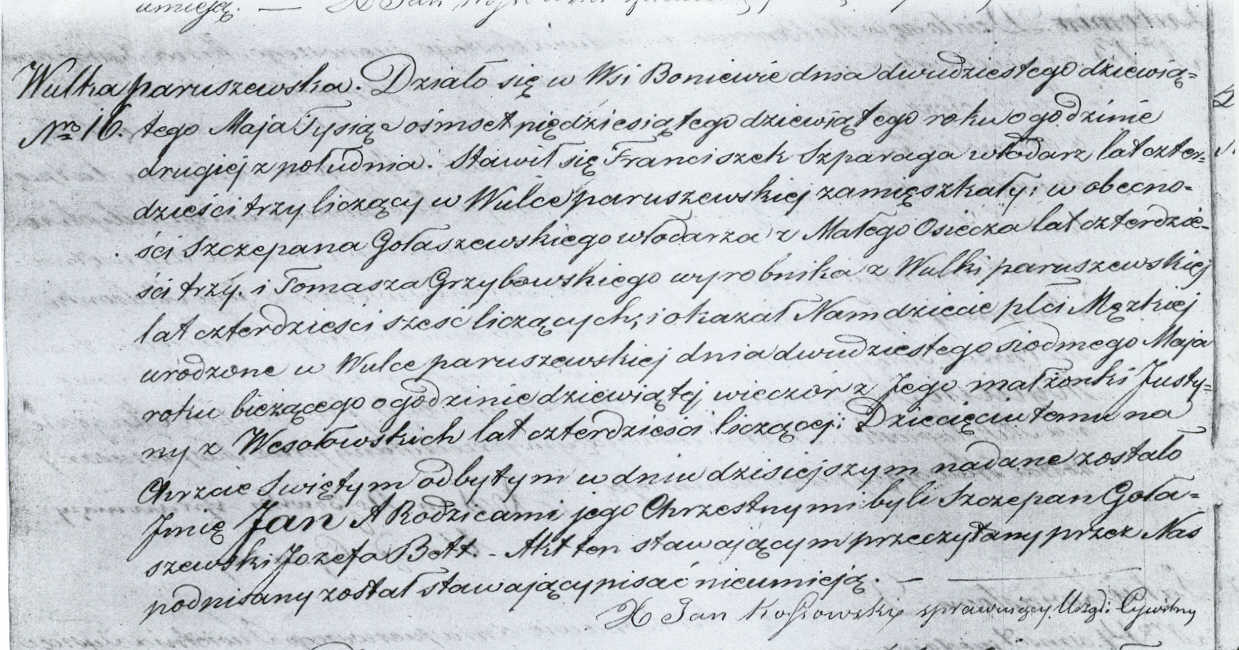 umieją. — X Jan
Wulka paruszewska. Działo się w Wsi Boniewie dnia dwudziestego dziewią=
Nro 16. tego Maja Tysiąc ośmset pięćdziesiątego dziewiątego roku o godzinie
drugiej z południa. Stawił się Franciszek Szparaga włodarz lat czter=
dzieści trzy liczący w Wulce paruszewskiej zamięszkały; w obecno=
ści Szczepana Gołaszewskiego włodarza z Małego Osiecza lat czterdzie=
ści trzy i Tomasza Grzybowskiego wyrobnika z Wulki paruszewskiej
lat czterdzieści sześć liczących, i okazał Nam dziecie płci Męzkiej
urodzone w Wulce paruszewskiej dnia dwudziestego siodmego Maja
roku bieżącego o godzinie dziewiątej wieczór z Jego małżonki Justy=
ny z Wesołowskich lat czterdzieści liczącej; Dziecięciu temu na
Chrzcie Swiętym odbytym w dniu dzisiejszym nadane zostało
Jmię Jan A Rodzicami jego Chrzestnymi byli Szczepan Goła=
szewski i Jozefa Bett. - Akt ten stawającym przeczytany przez Nas
podpisany został stawający pisać nieumieją. —
X Jan Kossowski sprawuiący Urzęd: Cywilny